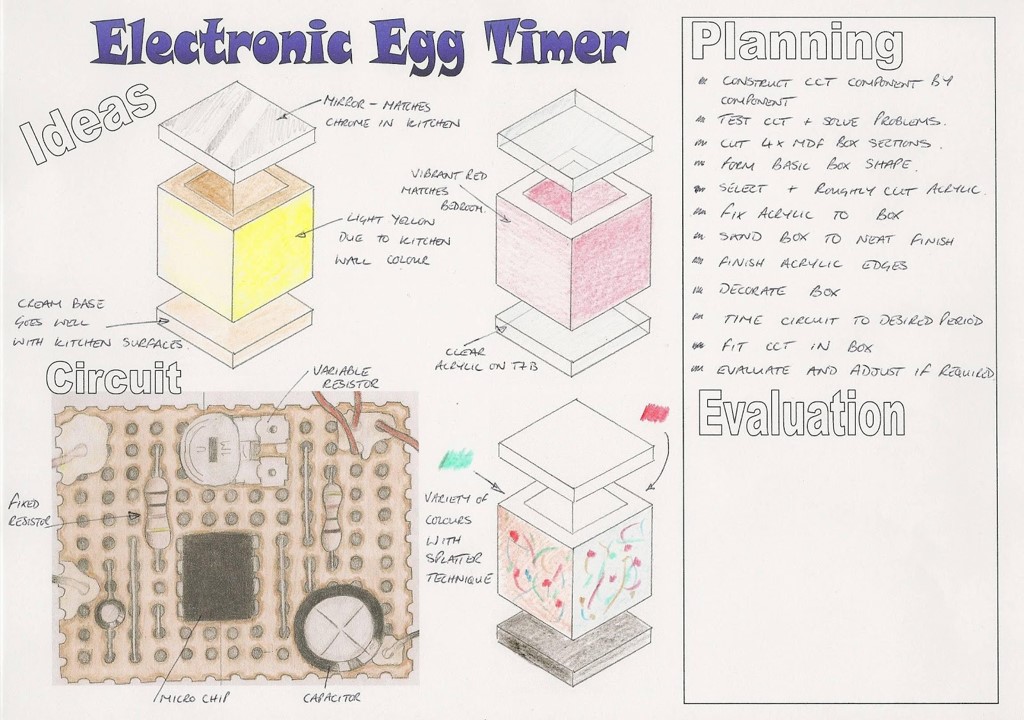 Electronic Egg Timer
Ideas
MIRROR - MATCHES
CHROME IN KITCHEN
LIGHT YELLOW
DUE TO KITCHEN
WALL COLOUR
CREAM BASE
GOES WELL
WITH KITCHEN SURFACES.
VIBRANT RED
MATCHES
BEDROOM.
CLEAR
ACRYLIC ON T+B
VARIETY OF
COLOURS
WITH
SPLATTER
TECHNIQUE
Circuit
VARIABLE
RESISTOR
FIXED
RESISTOR
MICRO CHIP
CAPACITOR
Planning
CONSTRUCT CCT COMPONENT BY
COMPONENT
TEST CCT + SOLVE PROBLEMS.
CUT 4x MDF BOX SECTIONS.
FORM BASIC BOX SHAPE.
SELECT + ROUGHLY CUT ACRYLIC.
FIX ACRYLIC TO BOX
SAND BOX TO NEAT FINISH
FINISH ACRYLIC EDGES
DECORATE BOX
TIME CIRCUIT TO DESIRED PERIOD
FIT CCT IN BOX
EVALUATE AND ADJUST IF REQUIRED
Evaluation